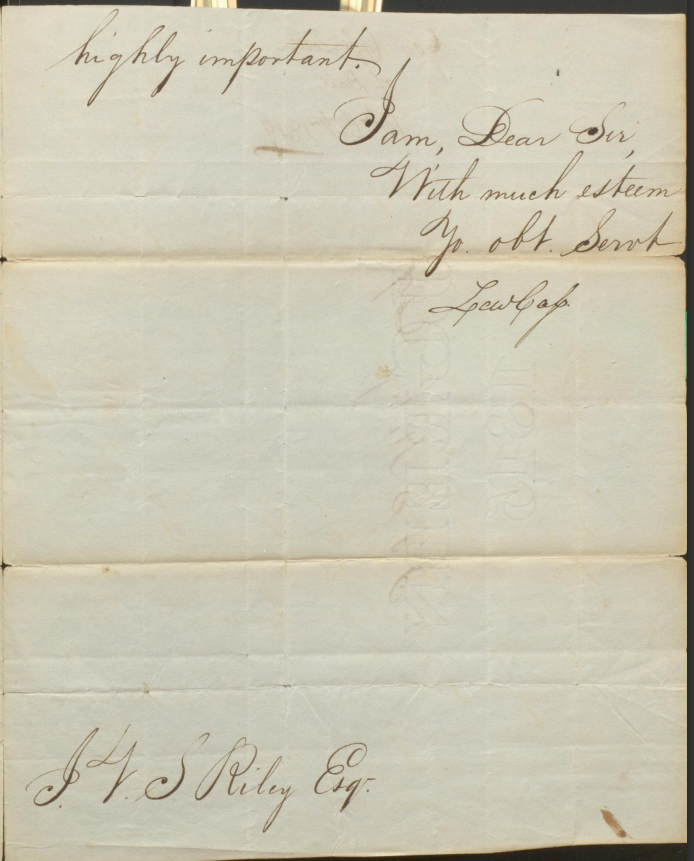 highly important.
I am, Dear Sir,
With much esteem
Yo. obt. Servt
Lew Cass
J. V. S Riley Esqr.